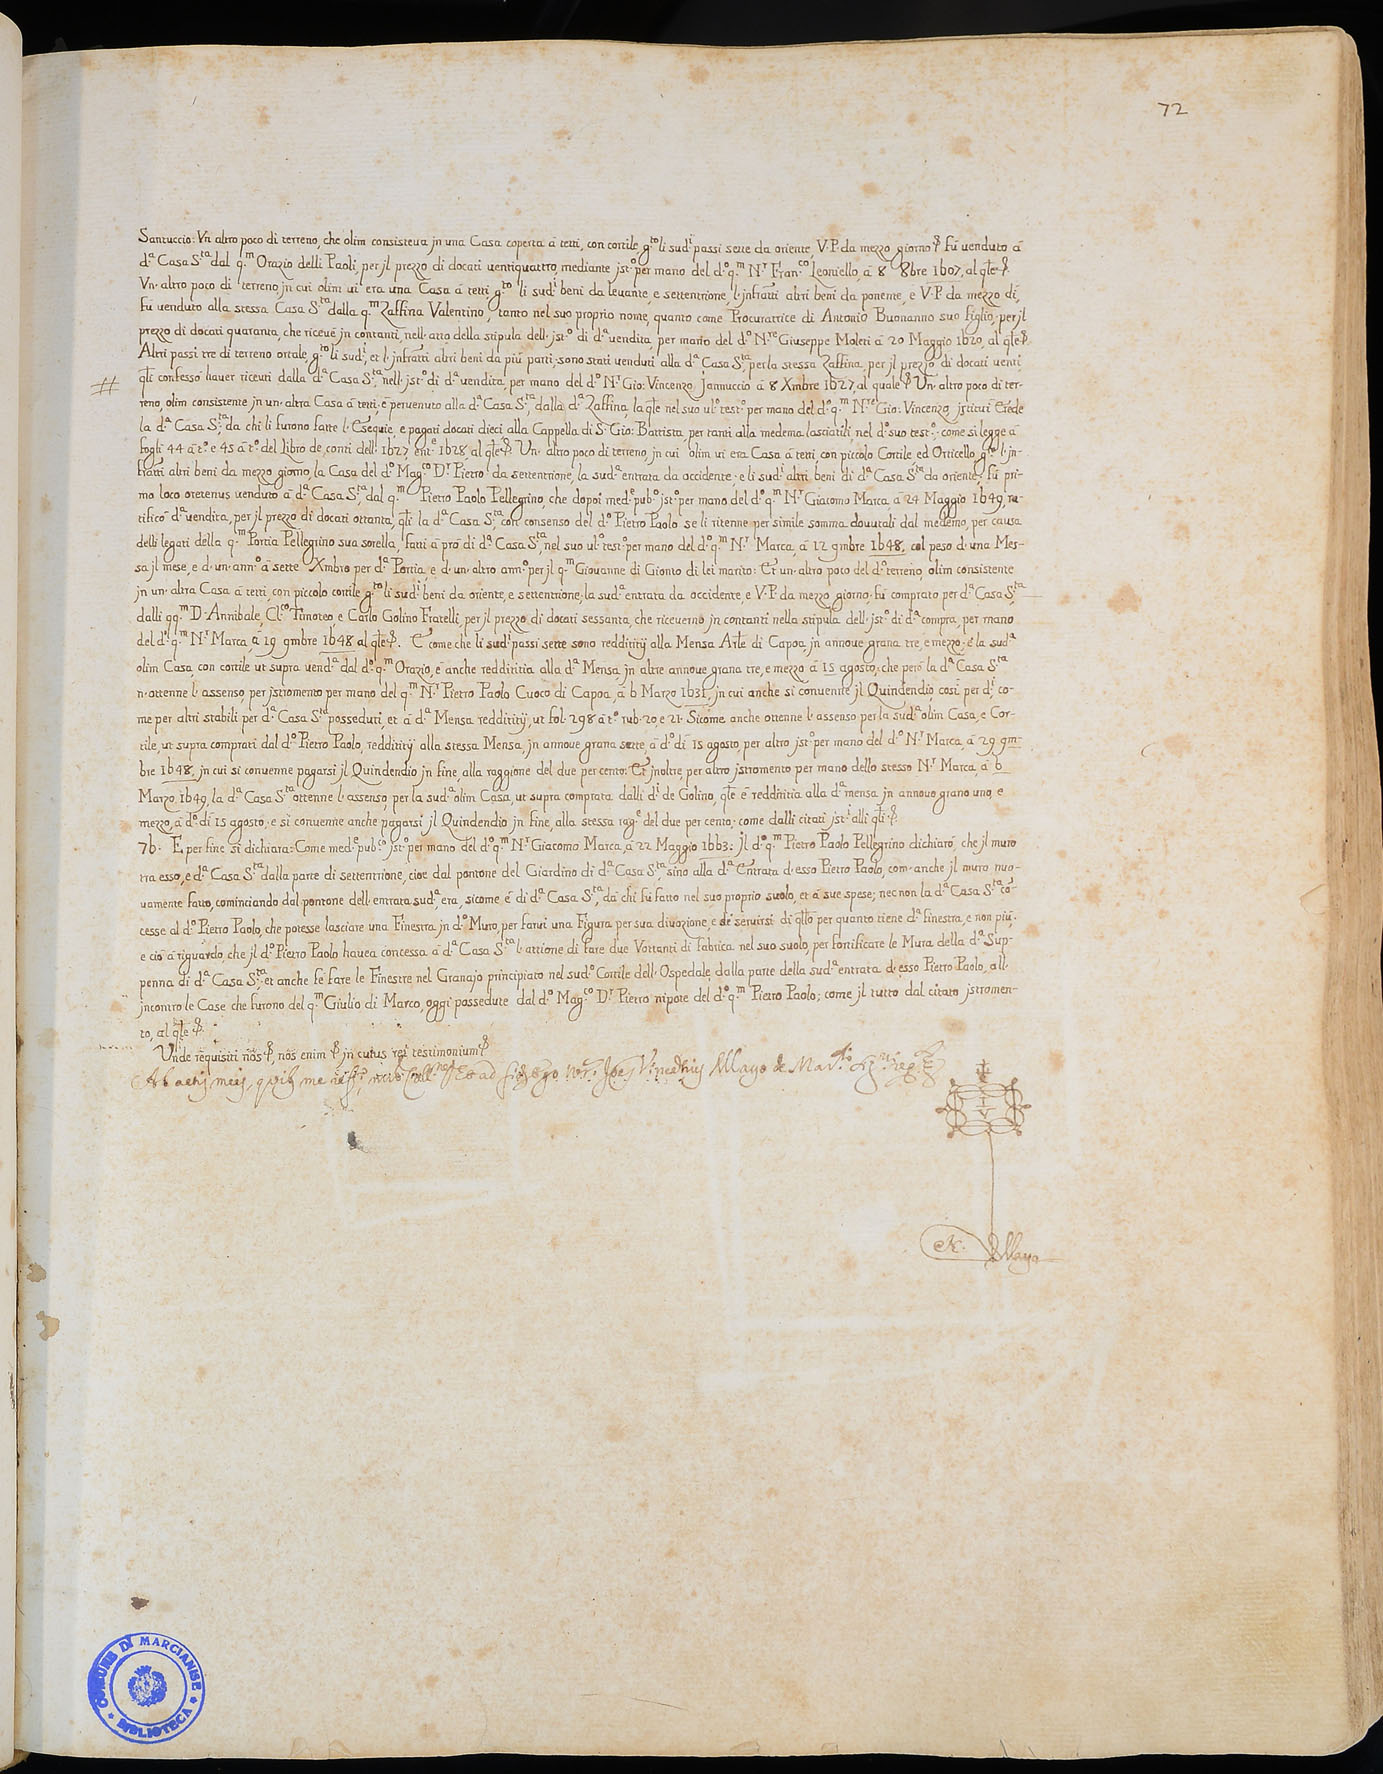 72
Santuccio: Vn altro poco di terreno, che olim consisteua jn una Casa coperta á tetti, con cortile, g.to li sud.i passi sette da oriente, V.P. da mezzo giorno fú uenduto á
d.a Casa S.ta dal q.m Orazio delli Paoli, per jl prezzo di docati uentiquattro, mediante jst.o per mano del d.o q.m N.r Fran.co Leoniello, á 8 8bre 1607, al qle
Vn altro poco di terreno, jn cui olim ui era una Casa á tetti, g.to li sud.i beni da leuante, e settentrione, l'jnfratti altri beni da ponente, e V.P. da mezzo di,
fú uenduto alla stessa Casa S.ta dalla q.m Zaffina Valentino, tanto nel suo proprio nome, quanto come Procuratrice di Antonio Buonanno suo figlio, per jl
prezzo di docati quaranta, che riceué jn contanti, nell'atto della stipula dell'jst.o di d.a vendita, per mano del d.o N.re Giuseppe Moleti á 20 Maggio 1620, al qle
Altri passi tre di terreno ortale, g.to li sud.i, et l'jnfratti altri beni da piú parti, sono stati uenduti alla d.a Casa S.ta, per la stessa Zaffina, per jl prezzo di docati uenti
# qli confessó hauer riceuti dalla d.a Casa S.ta, nell'jst.o di d.a vendita, per mano del d.o N.r Gio: Vincenzo Jannuccio á 8 Xmbre 1627, al quale Vn altro poco di ter-
reno, olim consistente jn un'altra Casa á tetti é peruenuto alla d.a Casa S.ta, dalla d.a Zaffina, la qle nel suo ul.o test.o per mano del d.o q.m N.re Gio: Vincenzo, jstituí Erede
la d.a Casa S.ta, da chi li furono fatte l'Esequie, e pagati docati dieci alla Cappella di S. Gio: Battista, per tanti alla medema lasciatili nel d.o suo test.o, come si legge á
fogli 44 á t.o e 45 á t.o del Libro de conti dell'1627, ent.e 1628, al qle Vn altro poco di terreno, jn cui olim ui era Casa á tetti, con piccolo Cortile ed Orticello, g.to l'jn-
fratti altri beni da mezzo giorno, la Casa del d.o Mag.co D.r Pietro da settentrione, la sud.a entrata da occidente, e li sud.i altri beni di d.a Casa S.ta da oriente, fú pri-
mo loco oretenus uenduto á d.a Casa S.ta, dal q.m Pietro Paolo Pellegrino, che dopoi med.e pub.o jst.o per mano del d.o q.m N.r Giacomo Marca á 24 Maggio 1649, ra-
tificó d.a vendita, per jl prezzo di docati ottanta, qli la d.a Casa S.ta, con consenso del d.o Pietro Paolo se li ritenne per simile somma douutali dal medemo, per causa
delli legati della q.m Portia Pellegrino sua sorella, fatti á pró di d.a Casa S.ta, nel suo ul.o test.o per mano del d.o q.m N.r Marca, á 12 9mbre 1648, col peso d'una Mes-
sa jl mese, e d'un'ann.o á sette Xmbre per d.a Portia, e d'un altro ann.o per jl q.m Giouanne di Gionto di lei marito: Et un'altro poco del d.o terreno, olim consistente
jn un'altra Casa á tetti, con piccolo cortile g.to li sud.i beni da oriente, e settentrione, la sud.a entrata da occidente, e V.P. da mezzo giorno, fú comprato per d.a Casa S.ta
dalli qq.m D. Annibale, Cl.co Timoteo, e Carlo Golino Fratelli, per jl prezzo di docati sessanta, che riceuerno jn contanti nella stipula dell'jst.o di d.a compra, per mano
del d.o q.m N.r Marca, á 19 9mbre 1648 al qle. E come che li sud.i passi sette sono reddititij alla Mensa Arle di Capoa, jn annoue grana tre, e mezzo; é la sud.a
olim Casa, con cortile ut supra vend.a dal d.o q.m Orazio, é anche reddititia alla d.a Mensa, jn altre annoue grana tre, e mezzo á 15 agosto, che peró la d.a Casa S.ta
n'ottenne l'assenso per jstromento per mano del q.m N.r Pietro Paolo Cuoco di Capoa, á 6 Marzo 1631, jn cui anche si conuenne jl Quindendio, cosí per d.i co-
me per altri stabili per d.a Casa S.ta posseduti, et á d.a Mensa reddititij, ut fol. 298 á t.o rub. 20, e 21. Sicome anche ottenne l'assenso per la sud.a olim Casa, e Cor-
tile, ut supra comprati dal d.o Pietro Paolo, reddititij alla stessa Mensa, jn annoue grana sette, á d.o dí 15 agosto, per altro jst.o per mano del d.o N.r Marca, á 29 9m-
bre 1648, jn cui si conuenne pagarsi jl Quindendio jn fine, alla raggione del due per cento: Et jnoltre, per altro jstromento per mano dello stesso N.r Marca, á 6
Marzo, 1649, la d.a Casa S.ta ottenne l'assenso, per la sud.a olim Casa, ut supra comprata dalli d.i de Golino, qle é reddititia alla d.a mensa jn annouo grano uno, e
mezzo, á d.o dí 15 agosto, e si conuenne anche pagarsi jl Quindendio jn fine, alla stessa rag.e del due per cento, come dalli citati jst.i alli qli
76. E per fine si dichiara: Come med.e pub.o jst.o per mano del d.o q.m N.r Giacomo Marca, á 22 Maggio 1663: jl d.o q.m Pietro Paolo Pellegrino dichiaró, che jl muro
tra esso, e d.a Casa S.ta dalla parte di settentrione, cioe dal pontone del Giardino di d.a Casa S.ta, sino alla d.a Entrata d'esso Pietro Paolo, com'anche jl muro nuo-
uamente fatto, cominciando dal pontone dell'entrata sud.a era, sicome é di d.a Casa S.ta, da chi fú fatto nel suo proprio suolo, et á sue spese; nec non la d.a Casa S.ta có-
cesse al d.o Pietro Paolo, che potesse lasciare una Finestra jn d.o Muro, per farui una Figura per sua diuozione, e di seruirsi di qllo per quanto tiene d.a finestra, e non piú;
e ció á riguardo, che jl d.o Pietro Paolo hauea concessa á d.a Casa S.ta l'attione di fare due Vottanti di fabrica nel suo suolo, per fortificare le Mura della d.a Sup-
penna di d.a Casa S.ta, et anche fé fare le Finestre nel Granajo principiato nel sud.o Cortile dell'Ospedale, dalla parte della sud.a entrata d'esso Pietro Paolo, all'
jncontro le Case che furono del q.m Giulio di Marco, oggi possedute dal d.o Mag.co D.r Pietro nipote del d.o q.m Pietro Paolo; come jl tutto dal citato jstromen-
to, al qle
Unde requisiti nos, nos enim jn cuius rei testimonium
Ab actis meis, quib me ego Not.r Joes Allayo de Mar.o
I V
N. Allayo
COMUNE DI MARCIANISE
BIBLIOTECA